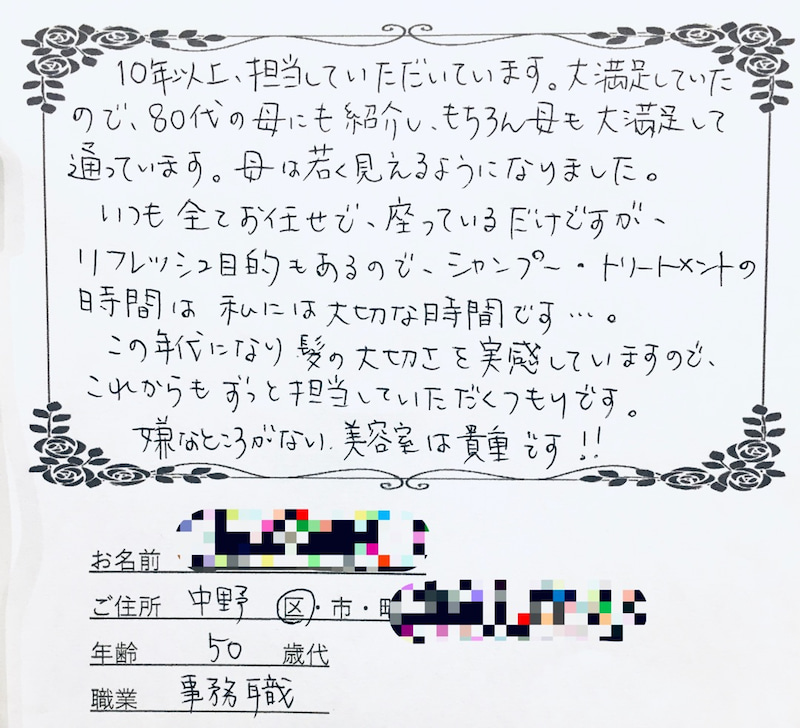 10年以上、担当していただいています。大満足していた
ので、80代の母にも紹介し、もちろん母も大満足して
通っています。母は若く見えるようになりました。
いつも全てお任せで、座っているだけですが、
リフレッシュ目的もあるので、シャンプー・トリートメントの
時間は私には大切な時間です…。
この年代になり髪の大切さを実感していますので、
これからもずっと担当していただくつもりです。
嫌なところがない、美容室は貴重です!!
お名前
ご住所 中野 区・市・町
年齢 50 歳代
職業 事務職